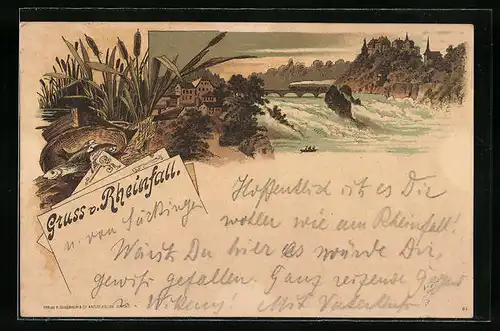 Gruss v. Rheinfall.
u. von Säckingen
Hoffentlich ist es Dir
wohler wie am Rheinfall!
Wärst Du hier es würde Dir
gewiss gefallen. Ganz reizende
Mit